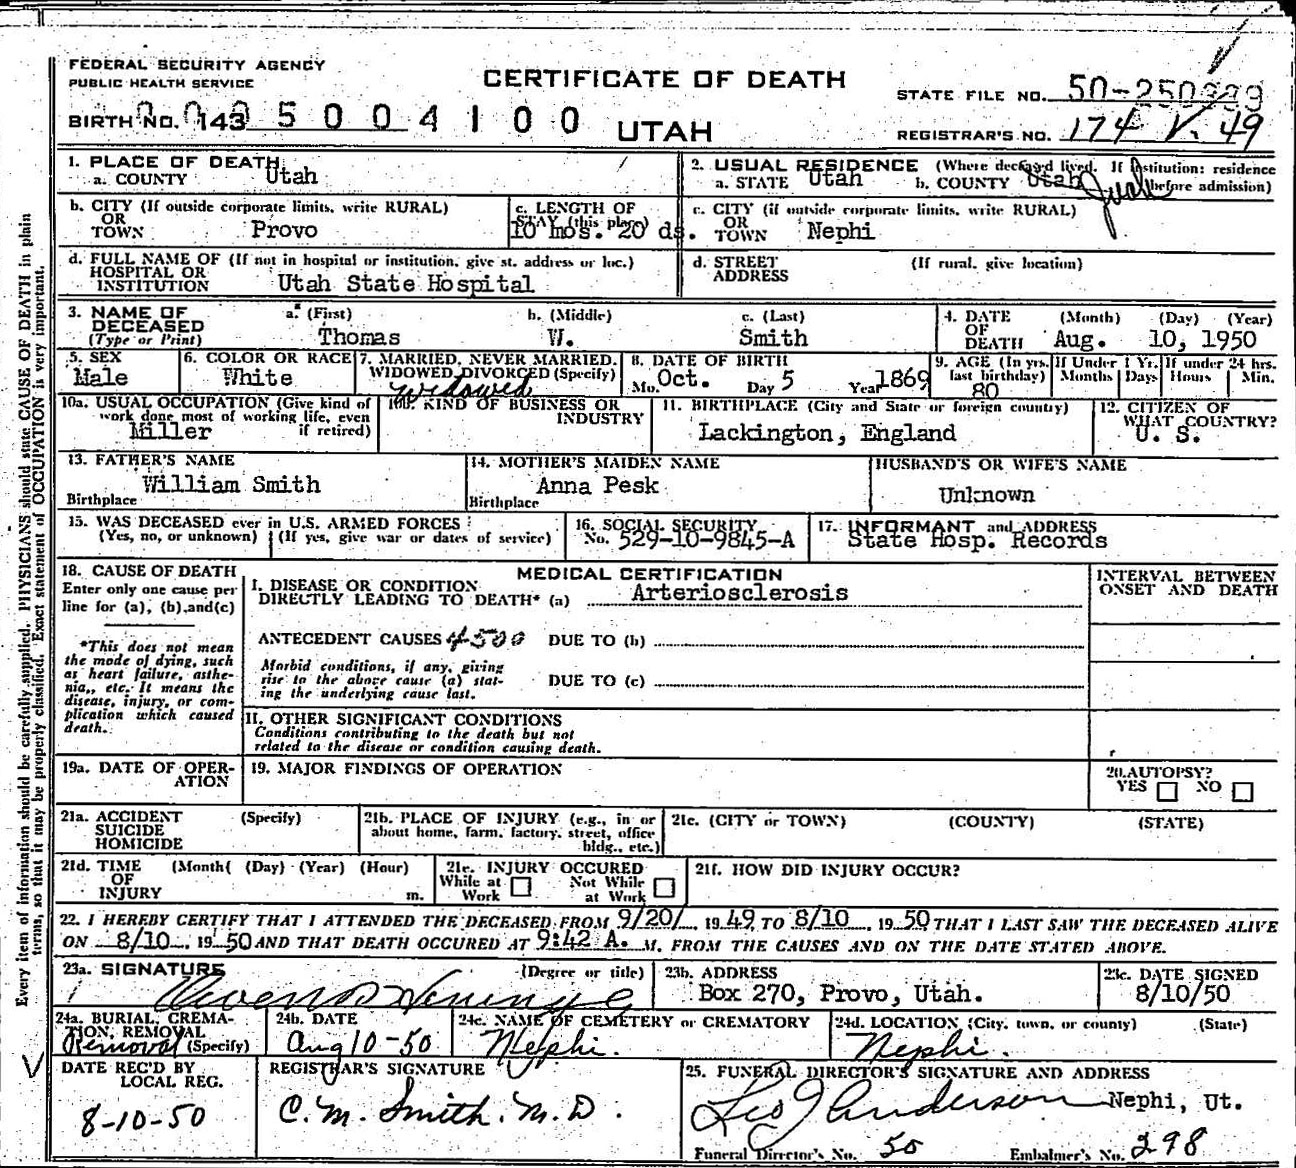 FEDERAL SECURITY AGENCY
PUBLIC HEALTH SERVICE
CERTIFICATE OF DEATH
STATE FILE NO. 50-250
BIRTH NO. 143 5004100
UTAH
REGISTRAR'S NO. 174 V. 49
1. PLACE OF DEATH
a. COUNTY Utah
2. USUAL RESIDENCE (Where deceased lived. If institution: residence before admission)
a. STATE Utah b. COUNTY Utah Juab
b. CITY (If outside corporate limits, write RURAL)
OR
TOWN Provo
c. LENGTH OF
STAY (this place)
10 mos. 20 ds.
c. CITY (if outside corporate limits, write RURAL)
OR
TOWN Nephi
d. FULL NAME OF (If not in hospital or institution, give st. address or loc.)
HOSPITAL OR
INSTITUTION Utah State Hospital
d. STREET (If rural, give location)
ADDRESS
3. NAME OF
DECEASED
(Type or Print)
a. (First) b. (Middle) c. (Last)
Thomas W. Smith
4. DATE (Month) (Day) (Year)
OF
DEATH Aug. 10, 1950
5. SEX
Male
6. COLOR OR RACE
White
7. MARRIED, NEVER MARRIED,
WIDOWED, DIVORCED (Specify)
Widowed
8. DATE OF BIRTH
Mo. Oct. Day 5 Year 1869
9. AGE (In yrs. last birthday)
80
If Under 1 Yr. If under 24 hrs.
Months Days Hours Min.
10a. USUAL OCCUPATION (Give kind of
work done most of working life, even
if retired)
Miller
10b. KIND OF BUSINESS OR
INDUSTRY
11. BIRTHPLACE (City and State or foreign country)
Lackington, England
12. CITIZEN OF
WHAT COUNTRY?
U. S.
13. FATHER'S NAME
William Smith
Birthplace
14. MOTHER'S MAIDEN NAME
Anna Pesk
Birthplace
HUSBAND'S OR WIFE'S NAME
Unknown
15. WAS DECEASED ever in U.S. ARMED FORCES
(Yes, no, or unknown) (If yes, give war or dates of service)
16. SOCIAL SECURITY
No. 529-10-9845-A
17. INFORMANT and ADDRESS
State Hosp. Records
18. CAUSE OF DEATH
Enter only one cause per
line for (a), (b), and (c)
*This does not mean
the mode of dying, such
as heart failure, asthe-
nia, etc. It means the
disease, injury, or com-
plication which caused
death.
MEDICAL CERTIFICATION
I. DISEASE OR CONDITION
DIRECTLY LEADING TO DEATH* (a) Arteriosclerosis
ANTECEDENT CAUSES 4500 DUE TO (b)
Morbid conditions, if any, giving
rise to the above cause (a) stat-
ing the underlying cause last.
DUE TO (c)
II. OTHER SIGNIFICANT CONDITIONS
Conditions contributing to the death but not
related to the disease or condition causing death.
INTERVAL BETWEEN
ONSET AND DEATH
19a. DATE OF OPER-
ATION
19. MAJOR FINDINGS OF OPERATION
20. AUTOPSY?
YES NO
21a. ACCIDENT (Specify)
SUICIDE
HOMICIDE
21b. PLACE OF INJURY (e.g., in or
about home, farm, factory, street, office
bldg., etc.)
21c. (CITY or TOWN) (COUNTY) (STATE)
21d. TIME (Month( (Day) (Year) (Hour)
OF
INJURY m.
21e. INJURY OCCURED
While at Work Not While at Work
21f. HOW DID INJURY OCCUR?
22. I HEREBY CERTIFY THAT I ATTENDED THE DECEASED FROM 9/20/ 1949 TO 8/10 1950 THAT I LAST SAW THE DECEASED ALIVE
ON 8/10, 1950 AND THAT DEATH OCCURED AT 9:42 A. M. FROM THE CAUSES AND ON THE DATE STATED ABOVE.
23a. SIGNATURE (Degree or title)
23b. ADDRESS
Box 270, Provo, Utah.
23c. DATE SIGNED
8/10/50
24a. BURIAL, CREMA-
TION, REMOVAL
Removal (Specify)
24b. DATE
Aug 10-50
24c. NAME OF CEMETERY or CREMATORY
Nephi.
24d. LOCATION (City, town, or county) (State)
Nephi.
DATE REC'D BY
LOCAL REG.
8-10-50
REGISTRAR'S SIGNATURE
C. M. Smith. M. D.
25. FUNERAL DIRECTOR'S SIGNATURE AND ADDRESS
Leo J Anderson Nephi, Ut.
Funeral Director's No. 50 Embalmer's No. 298
Every item of information should be carefully supplied. PHYSICIANS should state CAUSE OF DEATH in plain
terms, so that it may be properly classified. Exact statement of OCCUPATION is very important.